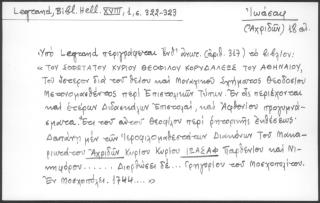 Legrand, Bibl. Hell. XVIII, 1, σ. 322-323
Ἰωάσαφ
(Ἀχριδῶν) ιη αἰ.
Ὑπὸ Legrand περιγράφεται ἐνθ' ἀνωτ. (ἀριθ. 317) τὸ βιβλίον:
«ΤΟΥ ΣΟΦΩΤΑΤΟΥ ΚΥΡΙΟΥ ΘΕΟΦΙΛΟΥ ΚΟΡΥΔΑΛΕΩΣ ΤΟΥ ΑΘΗΝΑΙΟΥ,
Τοῦ ὕστερον διὰ τοῦ θείου καὶ Μοναχικοῦ Σχήματος Θεοδοσίου
Μετονομασθέντος περὶ Ἐπιστολικῶν Τύπων. Ἐν οἷς περιέχονται
καὶ ἑτέρων Διδασκάλων Ἐπιστολαί, καὶ Ἀφθονίου προγυμνά-
σματα. Ἔτι τοῦ αὐτοῦ Θεοφίλου περὶ ῥητορικῆς ἐκθέσεως.
Δαπάνῃ μὲν τῶν Ἱερολογιωτάτων Διακόνων Τοῦ Μακα-
ριωτάτου Ἀχριδῶν Κυρίου Κυρίου ΙΩΑΣΑΦ Παρθενίου καὶ Νι-
κηφόρου....... Διορθώσει δὲ... Γρηγορίου τοῦ Μοσχοπολίτου.
Ἐν Μοσχοπόλει. 1744....»